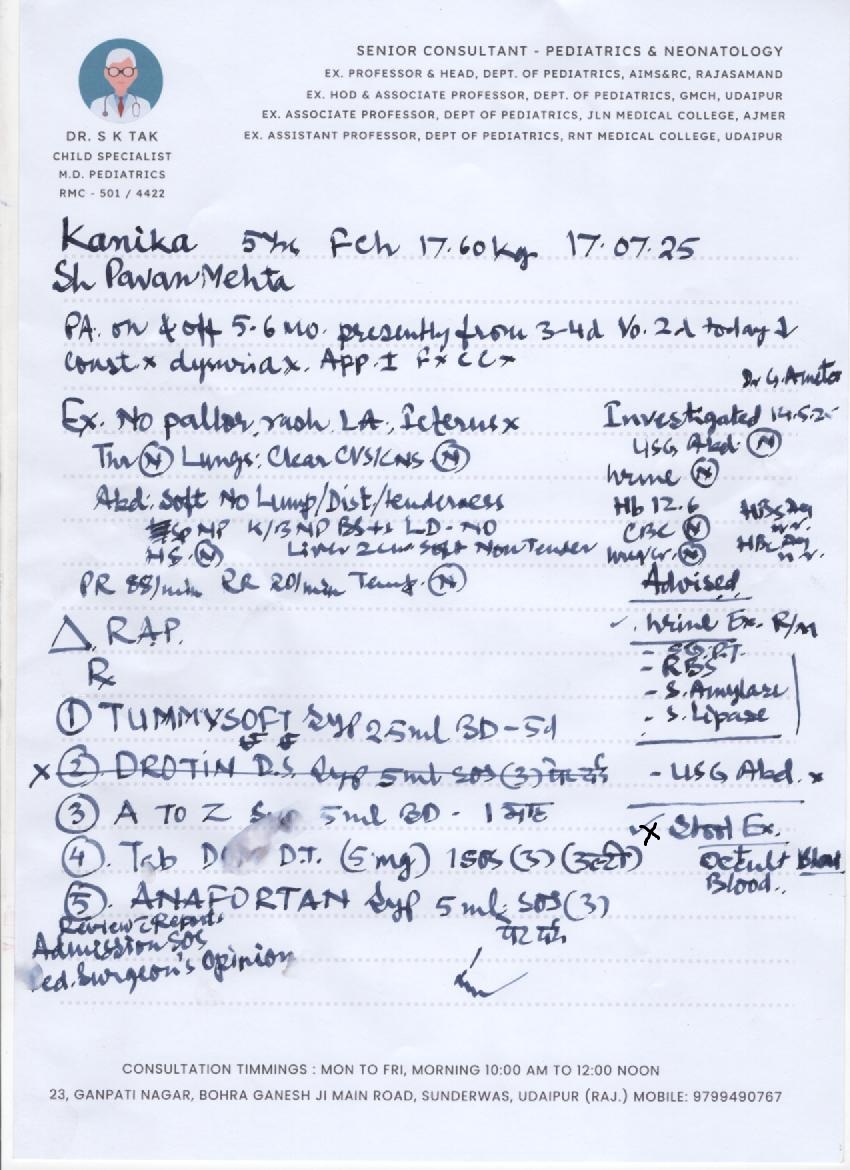 SENIOR CONSULTANT - PEDIATRICS & NEONATOLOGY
EX. PROFESSOR & HEAD, DEPT. OF PEDIATRICS, AIMS&RC, RAJASAMAND
EX. HOD & ASSOCIATE PROFESSOR, DEPT. OF PEDIATRICS, GMCH, UDAIPUR
EX. ASSOCIATE PROFESSOR, DEPT OF PEDIATRICS, JLN MEDICAL COLLEGE, AJMER
EX. ASSISTANT PROFESSOR, DEPT OF PEDIATRICS, RNT MEDICAL COLLEGE, UDAIPUR
DR. S K TAK
CHILD SPECIALIST
M.D. PEDIATRICS
RMC - 501 / 4422
Kanika 5 Fch 17.60kg 17.07.25
Sh Pavan Mehta
PA. on & off 5-6 mo. presently from 3-4d Vo. 2d today
Const x dysuria x. App.
Ex. No pallor, rash, LA, Icterus x
Thr (N) Lungs: Clear CVS/CNS (N)
Abd: Soft No Lump/Dist/tenderness
Sp NP K/B NP BS++ LD-NO
HS. (N) Liver 2cm Soft Non Tender
PR 88/min RR 20/min Temp. (N)
Investigated 14.5.25
USG Abd: (N)
Urine (N)
Hb 12.6 HBsAg
CBC (N)
Advised
Urine Ex. R/M
- SGPT.
- RBS
- S. Amylase
- S. Lipase
- USG Abd. x
x Stool Ex.
Occult
Blood.
Δ. RAP.
Rx
① TUMMYSOFT Syp 2.5ml BD - 5d
x ② DROTIN D.S. Syp 5ml SOS (3) पेट दर्द
③ A TO Z 5ml BD - 1 माह
④. Tab D.T. (5mg) 1 SOS (3) (उल्टी)
⑤. ANAFORTAN Syp 5ml SOS (3)
पेट दर्द
Review c Reports
Admission SOS
Surgeon's Opinion
CONSULTATION TIMMINGS : MON TO FRI, MORNING 10:00 AM TO 12:00 NOON
23, GANPATI NAGAR, BOHRA GANESH JI MAIN ROAD, SUNDERWAS, UDAIPUR (RAJ.) MOBILE: 9799490767